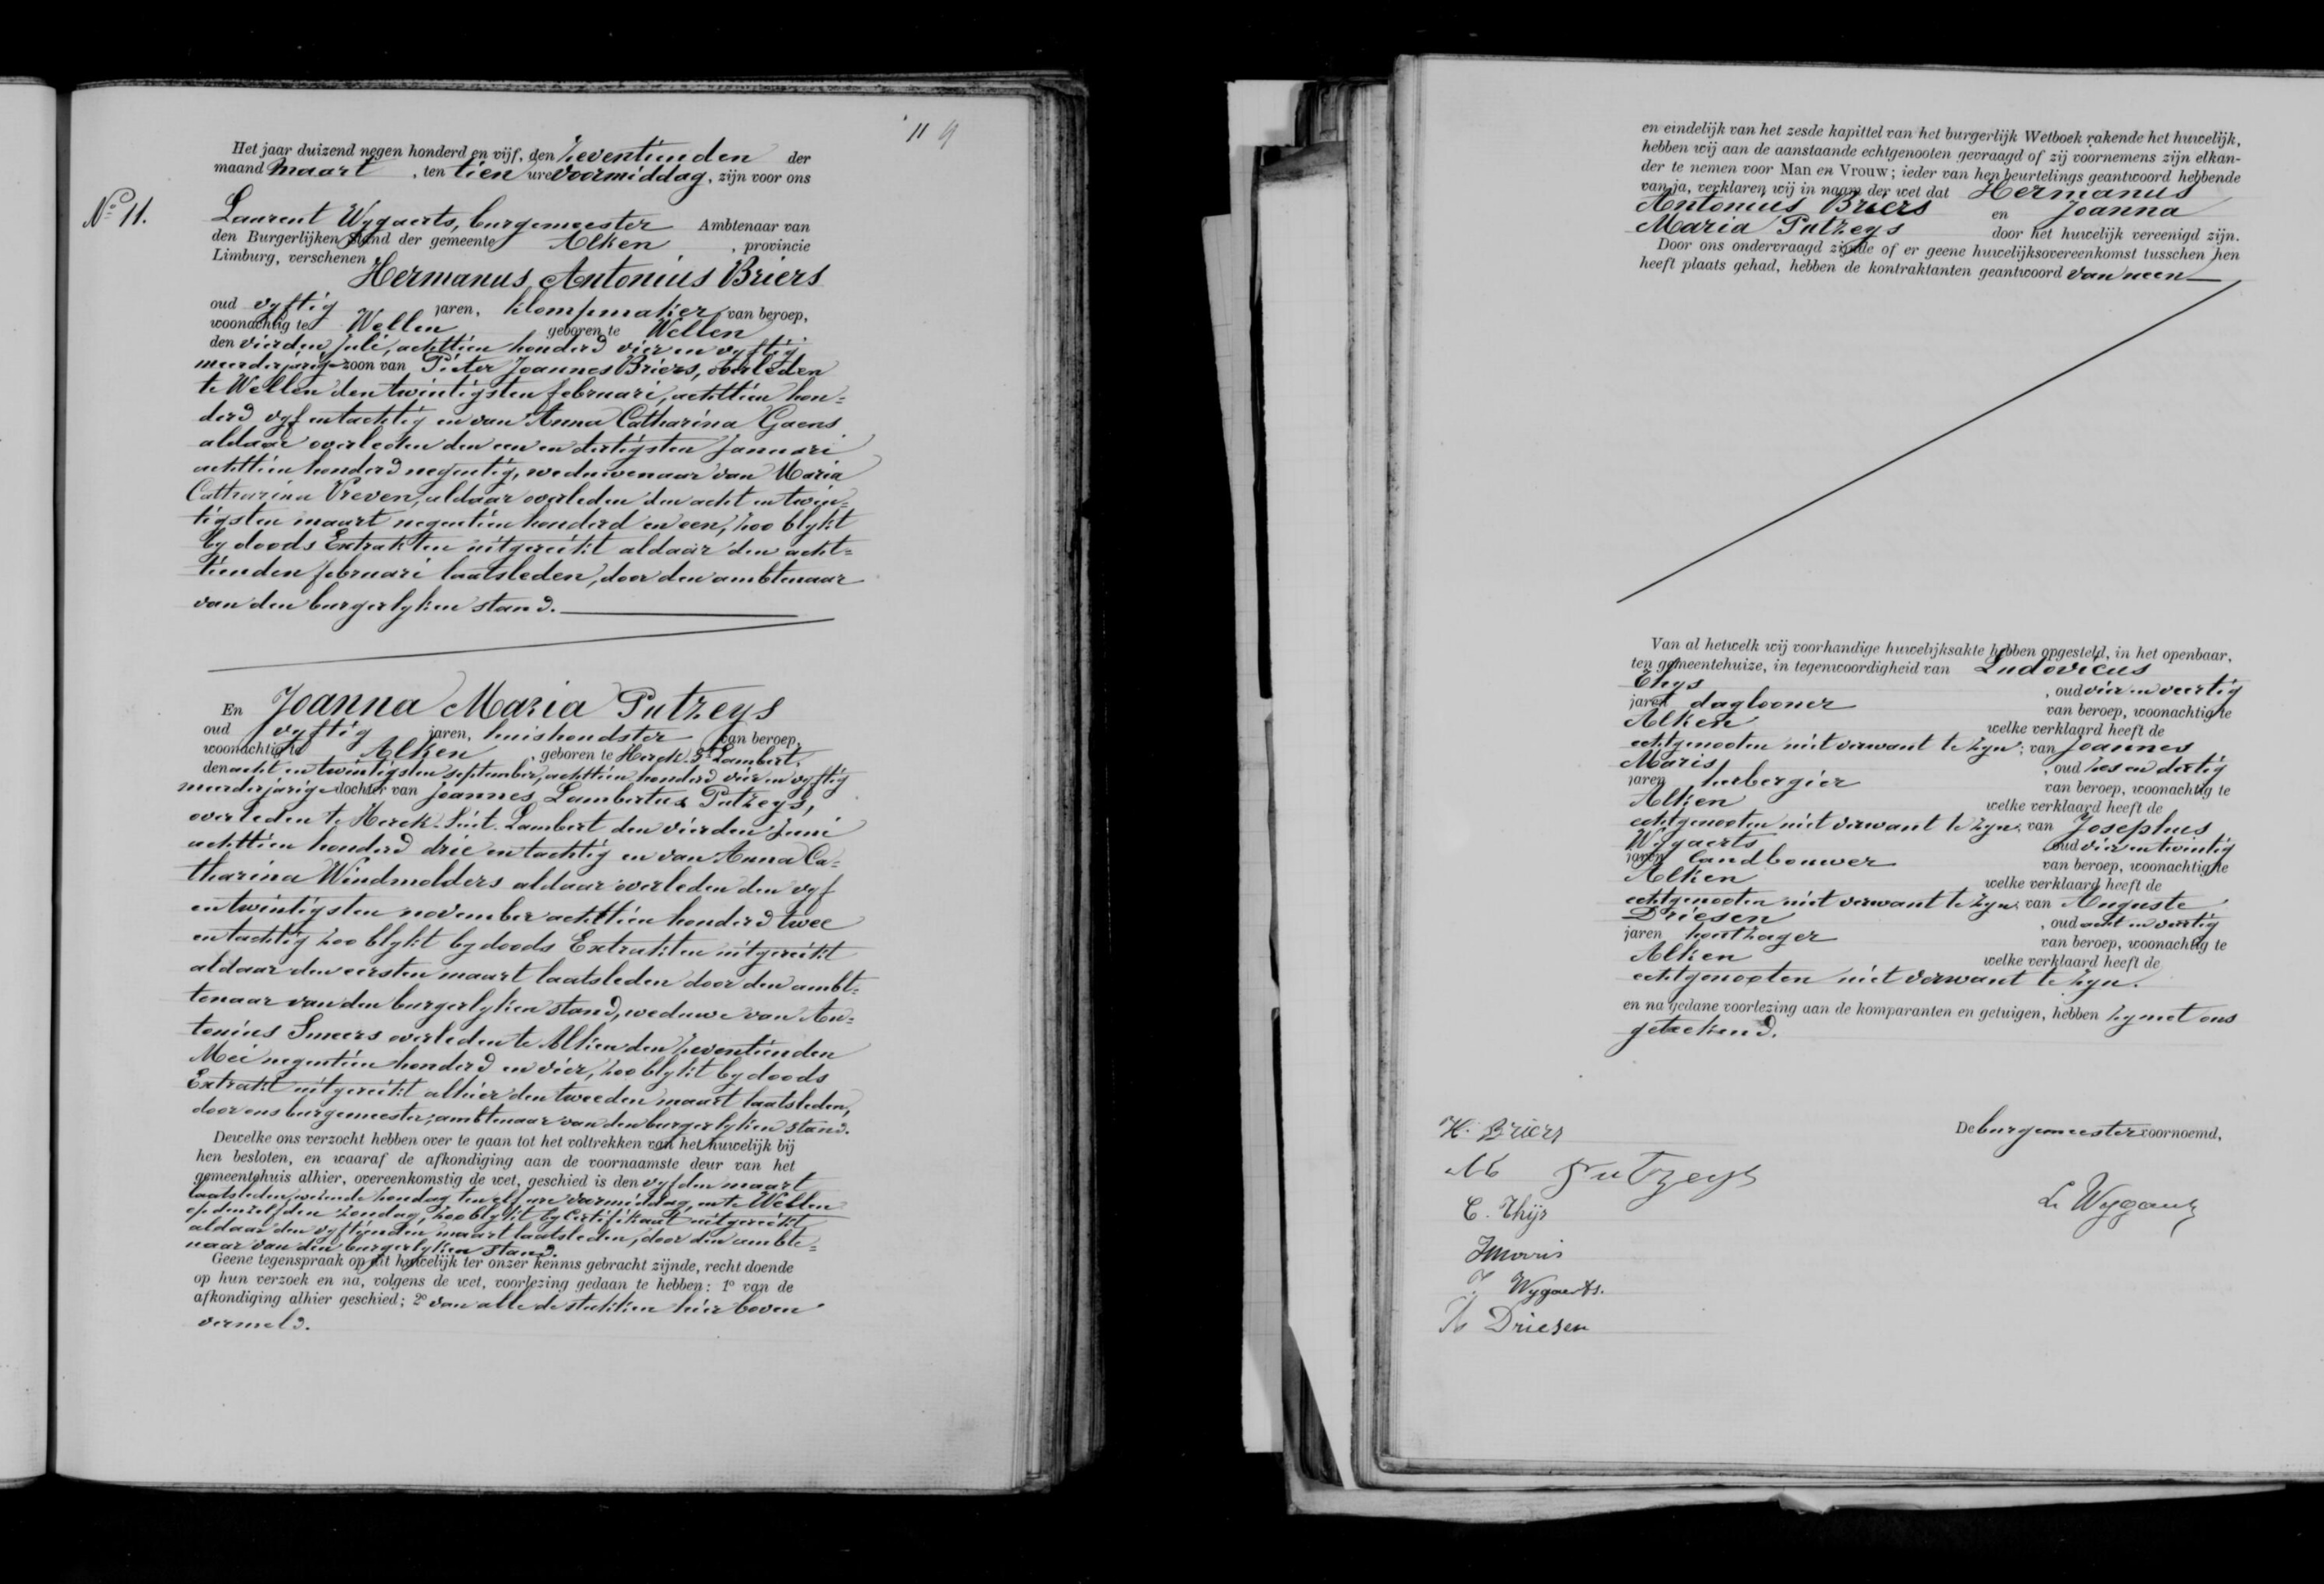 11 9
Het jaar duizend negen honderd en vijf, den zeventienden der
maand Maart, ten tien ure voormiddag, zijn voor ons
No 11.
Laurent Wygaerts, burgemeester Ambtenaar van
den Burgerlijken Stand der gemeente Alken, provincie
Limburg, verschenen
Hermanus Antonius Briers
oud vyftig jaren, klompmaker van beroep,
woonachtig te Wellen geboren te Wellen,
den vierden Juli, achttien honderd vier en vyftig
meerderjarige zoon van Pieter Joannes Briers, overleden
te Wellen den twintigsten februari, achttien hon=
derd vyf en tachtig en van Anna Catharina Gaens
aldaar overleden den een en dertigsten Januari
achttien honderd negentig, weduwenaar van Maria
Catharina Vreven, aldaar overleden den acht en twin=
tigsten maart negentien honderd en een, zoo blykt
by doods Extrakten uitgereikt aldaar den acht=
tienden februari laatsleden, door den ambtenaar
van den burgerlyken stand.
En Joanna Maria Putzeys
oud vyftig jaren, huishoudster van beroep,
woonachtig te Alken, geboren te Herck-St Lambert,
den acht en twintigsten september, achttien honderd vier en vyftig
meerderjarige dochter van Joannes Lambertus Putzeys,
overleden te Herck-Sint-Lambert den vierden Juni
achttien honderd drie en tachtig en van Anna Ca=
tharina Windmolders aldaar overleden den vyf
en twintigsten november achttien honderd twee
en tachtig zoo blykt by doods Extrakten uitgereikt
aldaar den eersten maart laatsleden door den ambt=
tenaar van den burgerlyken stand, weduwe van An=
tonius Smeers overleden te Alken den zeventienden
Mei negentien honderd en vier, zoo blykt by doods
Extrakt uitgereikt alhier den tweeden maart laatsleden,
door ons burgemeester, ambtenaar van den burgerlyken stand.
Dewelke ons verzocht hebben over te gaan tot het voltrekken van het huwelijk bij
hen besloten, en waaraf de afkondiging aan de voornaamste deur van het
gemeentehuis alhier, overeenkomstig de wet, geschied is den vyfden maart
laatsleden, wezende zondag ten elf ure voormiddag, en te Wellen
op denzelfden zondag, zoo blykt by Certifikaat uitgereikt
aldaar den vyftienden maart laatsleden, door den ambte=
naar van den burgerlyken stand.
Geene tegenspraak op dit huwelijk ter onzer kennis gebracht zijnde, recht doende
op hun verzoek en na, volgens de wet, voorlezing gedaan te hebben: 1o van de
afkondiging alhier geschied; 2o van alle de stukken hier boven
vermeld.
en eindelijk van het zesde kapittel van het burgerlijk Wetboek rakende het huwelijk,
hebben wij aan de aanstaande echtgenooten gevraagd of zij voornemens zijn elkan-
der te nemen voor Man en Vrouw; ieder van hen beurtelings geantwoord hebbende
van ja, verklaren wij in naam der wet dat Hermanus
Antonius Briers en Joanna
Maria Putzeys door het huwelijk vereenigd zijn.
Door ons ondervraagd zijnde of er geene huwelijksovereenkomst tusschen hen
heeft plaats gehad, hebben de kontraktanten geantwoord van neen
Van al hetwelk wij voorhandige huwelijksakte hebben opgesteld, in het openbaar,
ten gemeentehuize, in tegenwoordigheid van Ludovicus
Thys, oud vier en veertig
jaren daglooner van beroep, woonachtig te
Alken welke verklaard heeft de
echtgenooten niet verwant te zyn; van Joannes
Maris, oud zes en dertig
jaren herbergier van beroep, woonachtig te
Alken welke verklaard heeft de
echtgenooten niet verwant te zyn; van Josephus
Wygaerts oud vier en twintig
jaren landbouwer van beroep, woonachtig te
Alken welke verklaard heeft de
echtgenooten niet verwant te zyn; van Auguste
Driesen, oud acht en veertig
jaren houtzager van beroep, woonachtig te
Alken welke verklaard heeft de
echtgenooten niet verwant te zyn.
en na gedane voorlezing aan de komparanten en getuigen, hebben zy met ons
geteekend.
H. Briers
De burgemeester voornoemd,
M Putzeys
L. Wygaerts
Thijs
JMaris
J. Wygaerts.
Driesen